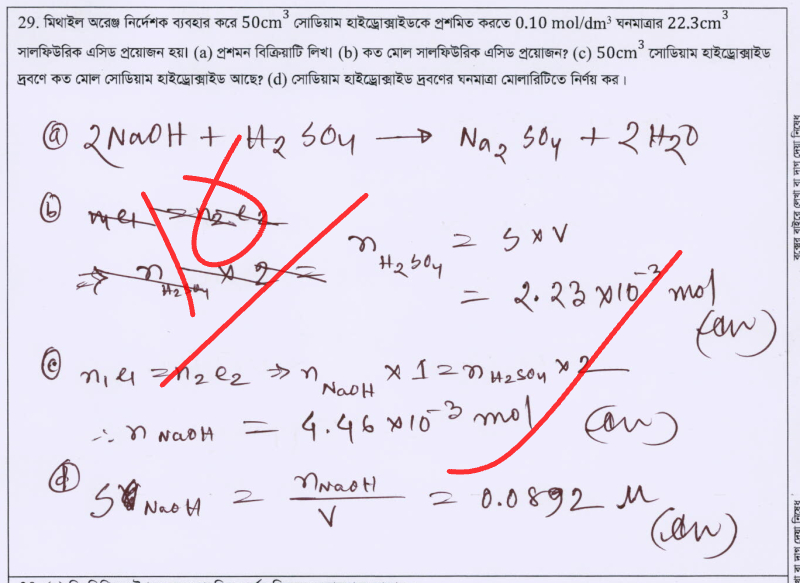 29. মিথাইল অরেঞ্জ নির্দেশক ব্যবহার করে 50cm³ সোডিয়াম হাইড্রোক্সাইডকে প্রশমিত করতে 0.10 mol/dm³ ঘনমাত্রার 22.3cm³
সালফিউরিক এসিড প্রয়োজন হয়। (a) প্রশমন বিক্রিয়াটি লিখ। (b) কত মোল সালফিউরিক এসিড প্রয়োজন? (c) 50cm³ সোডিয়াম হাইড্রোক্সাইড
দ্রবণে কত মোল সোডিয়াম হাইড্রোক্সাইড আছে? (d) সোডিয়াম হাইড্রোক্সাইড দ্রবণের ঘনমাত্রা মোলারিটিতে নির্ণয় কর ।
ⓐ 2NaOH + H₂SO₄ → Na₂SO₄ + 2H₂O
ⓑ n₁e₁ = n₂e₂
⇒ n H₂SO₄ × 2 =
n H₂SO₄ = S × V
= 2.23 × 10⁻³ mol
(Ans)
ⓒ n₁e₁ = n₂e₂ ⇒ n NaOH × 1 = n H₂SO₄ × 2
∴ n NaOH = 4.46 × 10⁻³ mol (Ans)
ⓓ S NaOH = n NaOH / V = 0.0892 M
(Ans)